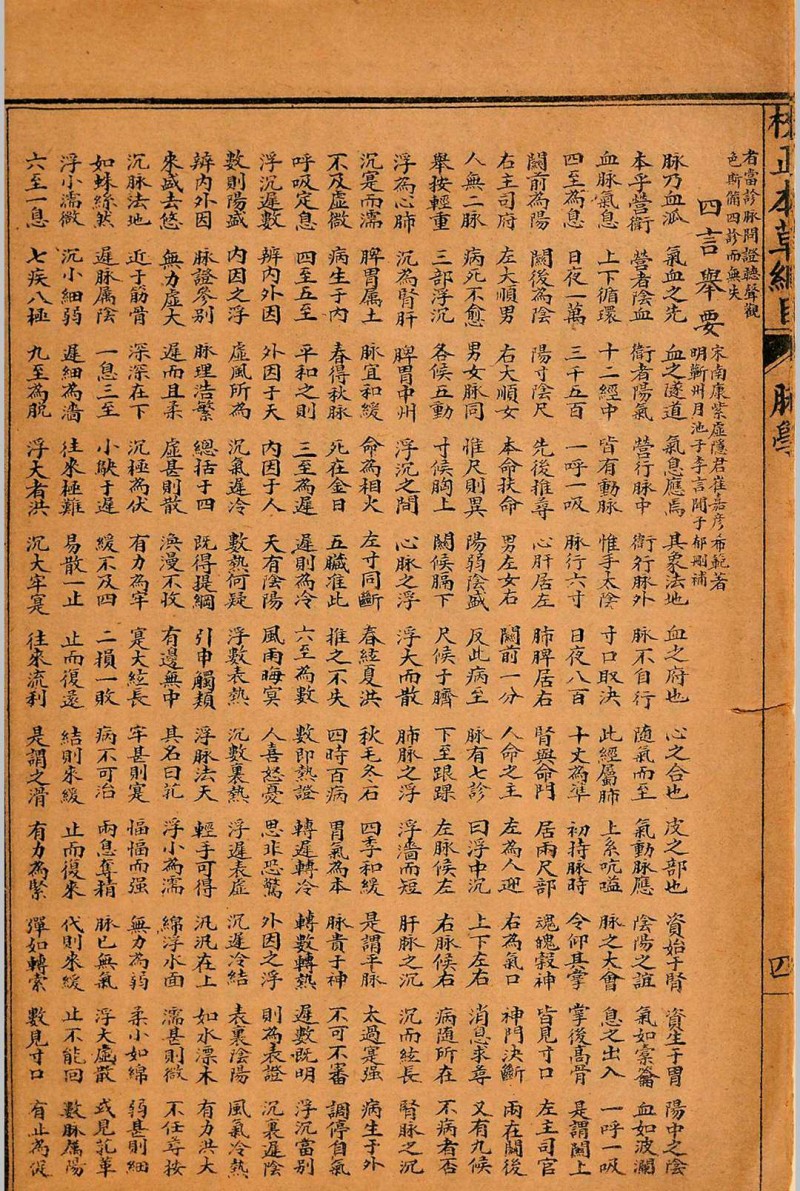 校正本草綱目 脉學 四
者當診脉問證聽聲觀
色斯備四診而無失
四言舉要
宋南康紫虛隱君崔嘉彥希範著
明蘄州月池子李言聞子郁刪補
脉乃血派 氣血之先 血之隧道 氣息應焉 其象法地 血之府也 心之合也 皮之部也 資始于腎 資生于胃 陽中之陰
本乎營衛 營者陰血 衛者陽氣 營行脉中 衛行脉外 脉不自行 隨氣而至 氣動脉應 陰陽之誼 氣如橐籥 血如波瀾
血脉氣息 上下循環 十二經中 皆有動脉 惟手太陰 寸口取決 此經屬肺 上系吭嗌 脉之大會 息之出入 一呼一吸
四至為息 日夜一萬 三千五百 一呼一吸 脉行六寸 日夜八百 十丈為準 初持脉時 令仰其掌 掌後高骨 是謂關上
關前為陽 關後為陰 陽寸陰尺 先後推尋 心肝居左 肺脾居右 腎與命門 居兩尺部 魂魄穀神 皆見寸口 左主司官
右主司府 左大順男 右大順女 本命扶命 男左女右 關前一分 人命之主 左為人迎 右為氣口 神門決斷 兩在關後
人無二脉 病死不愈 男女脉同 惟尺則異 陽弱陰盛 反此病至 脉有七診 曰浮中沉 上下左右 消息求尋 又有九候
舉按輕重 三部浮沉 各候五動 寸候胸上 關候膈下 尺候于臍 下至跟踝 左脉候左 右脉候右 病隨所在 不病者否
浮為心肺 沉為腎肝 脾胃中州 浮沉之間 心脉之浮 浮大而散 肺脉之浮 浮濇而短 肝脉之沉 沉而絃長 腎脉之沉
沉寔而濡 脾胃属土 脉宜和緩 命為相火 左寸同斷 春絃夏洪 秋毛冬石 四季和緩 是謂平脉 太過寔强 病生于外
不及虛微 病生于內 春得秋脉 死在金日 五臟准此 推之不失 四時百病 胃氣為本 脉貴于神 不可不審 調停自氣
呼吸定息 四至五至 平和之則 三至為遲 遲則為冷 六至為數 數即熱證 轉遲轉冷 轉數轉熱 遲數既明 浮沉當別
浮沉遲數 辨內外因 外因于天 內因于人 天有陰陽 風雨晦冥 人喜怒憂 思悲恐驚 外因之浮 則為表證 沉裏遲陰
數則陽盛 內因之浮 虛風所為 沉氣遲冷 數熱何疑 浮數表熱 沉數裏熱 浮遲表虛 沉遲冷結 表裏陰陽 風氣冷熱
辨內外因 脉證參別 脉理浩繁 總括于四 既得提綱 引申觸類 浮脉法天 輕手可得 汎汎在上 如水漂木 有力洪大
來盛去悠 無力虛大 遲而且柔 虛甚則散 渙漫不收 有邊無中 其名曰芤 浮小為濡 綿浮水面 濡甚則微 不任尋按
沉脉法地 近于筋骨 深深在下 沉極為伏 有力為牢 寔大絃長 牢甚則寔 愊愊而强 無力為弱 柔小如綿 弱甚則細
如蛛絲然 遲脉属陰 一息三至 小駃于遲 緩不及四 二損一敗 病不可治 兩息奪精 脉已無氣 浮大虛散 或見芤革
浮小濡微 沉小細弱 遲細為濇 往來極難 易散一止 止而復還 結則來緩 止而復來 代則來緩 止不能回 數脉属陽
六至一息 七疾八極 九至為脫 浮大者洪 沉大牢寔 往來流利 是謂之滑 有力為緊 彈如轉索 數見寸口 有止為促